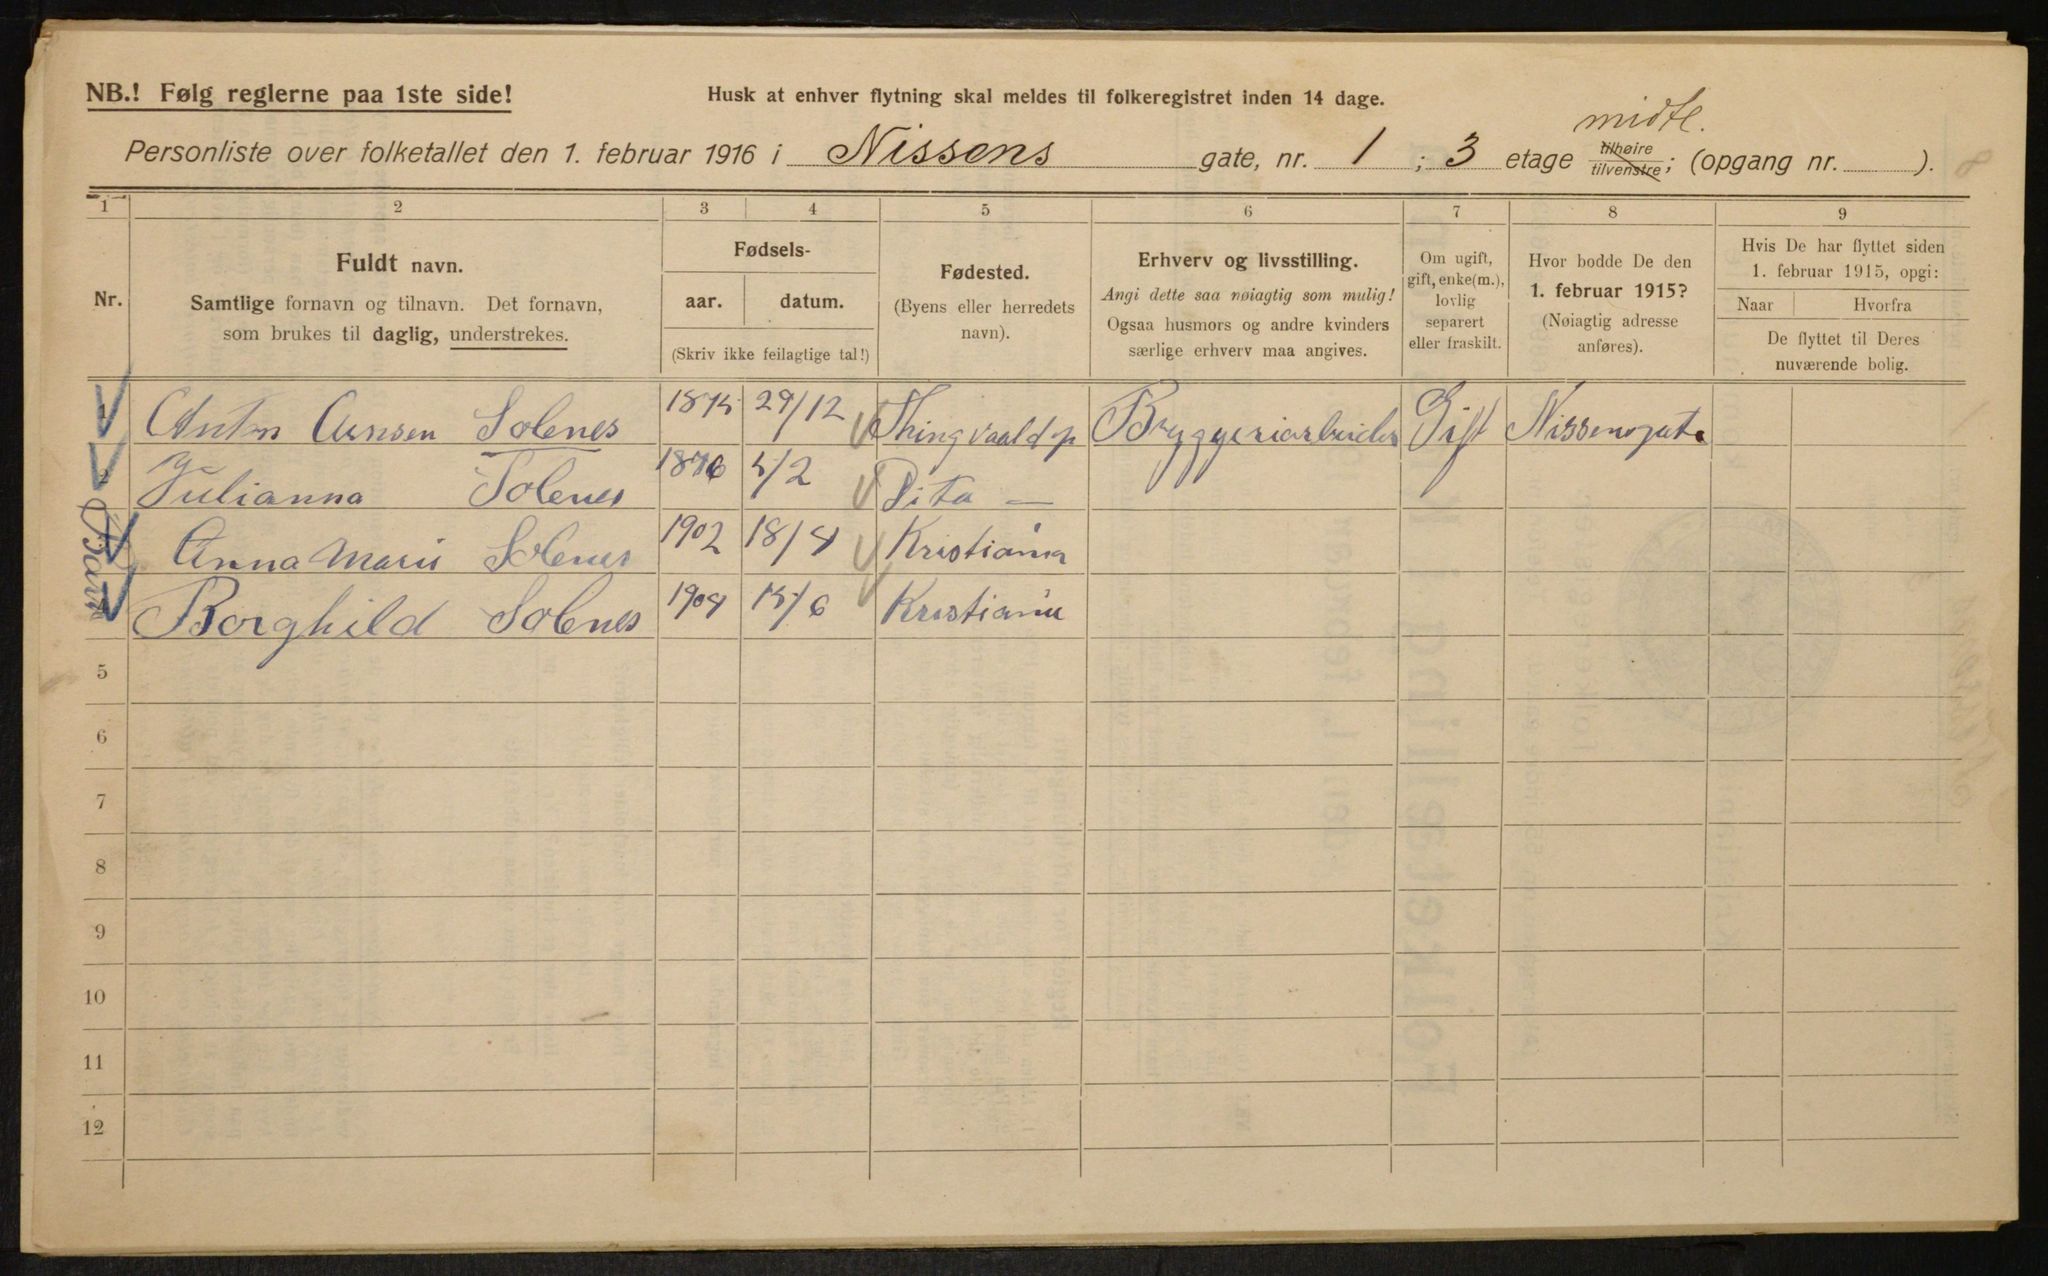 NB.! Følg reglerne paa 1ste side!
Husk at enhver flytning skal meldes til folkeregistret inden 14 dage.
midte.
Personliste over folketallet den 1. februar 1916 i Nissens gate, nr. 1 ; 3 etage tilhøire tilvenstre; (opgang nr. ).
1 2 3 4 5 6 7 8 9
Nr.
Fuldt navn.
Samtlige fornavn og tilnavn. Det fornavn,
som brukes til daglig, understrekes.
Fødsels-
aar. datum.
(Skriv ikke feilagtige tal!)
Fødested.
(Byens eller herredets
navn).
Erhverv og livsstilling.
Angi dette saa nøiagtig som mulig!
Ogsaa husmors og andre kvinders
særlige erhverv maa angives.
Om ugift,
gift, enke(m.),
lovlig
separert
eller fraskilt.
Hvor bodde De den
1. februar 1915?
(Nøiagtig adresse
anføres).
Hvis De har flyttet siden
1. februar 1915, opgi:
Naar Hvorfra
De flyttet til Deres
nuværende bolig.
Anton Solenes 1875 29/12 Bryggeriarbeider Gift Nissensgate
2 Julianna Solenes 1876 5/2 Dito —
Barn
Anna Marie Solenes 1902 18/8 Kristiania
Borghild Solenes 1904 15/6 Kristiania
5
6
7
8
9
10
11
12